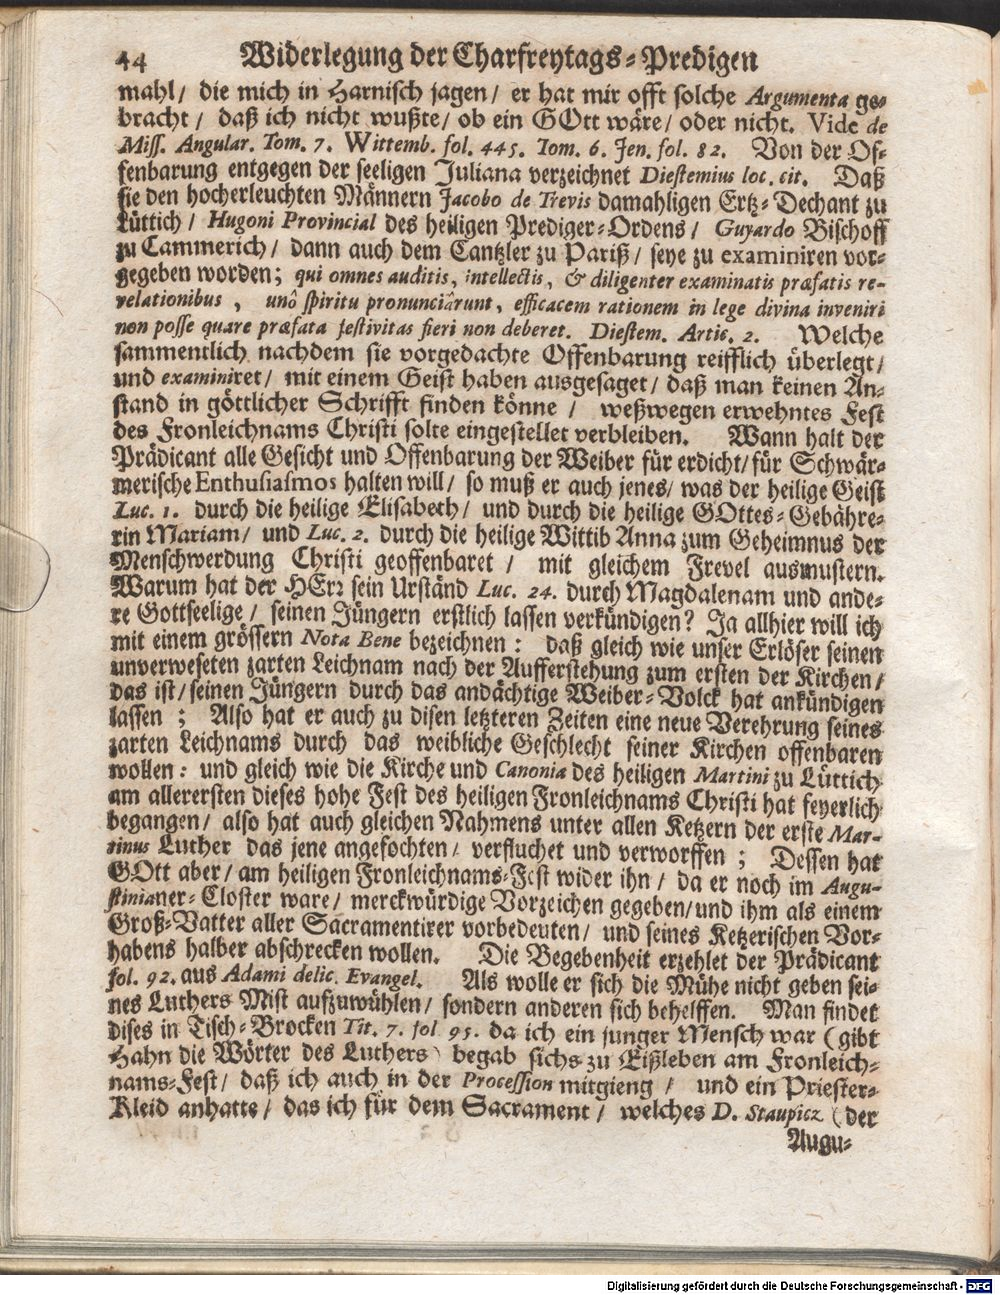 44 Widerlegung der Charfreytags-Predigen
mahl/ die mich in Harnisch jagen/ er hat mir offt solche Argumenta ge-
bracht/ daß ich nicht wußte/ ob ein GOtt wäre/ oder nicht. Vide de
Miss. Angular. Tom. 7. Wittemb. fol. 445. Tom. 6. Jen. fol. 82. Von der Of-
fenbarung entgegen der seeligen Juliana verzeichnet Diestemius loc. cit. Daß
sie den hocherleuchten Männern Jacobo de Trevis damahligen Ertz-Dechant zu
Lüttich/ Hugoni Provincial des heiligen Prediger-Ordens/ Guyardo Bischoff
zu Cammerich/ dann auch dem Cantzler zu Pariß/ seye zu examiniren vor-
gegeben worden; qui omnes auditis, intellectis, & diligenter examinatis præfatis re-
velationibus, unô spiritu pronunciârunt, efficacem rationem in lege divina inveniri
non posse quare præfata festivitas fieri non deberet. Diestem. Artic. 2. Welche
sammentlich nachdem sie vorgedachte Offenbarung reifflich überlegt/
und examiniret/ mit einem Geist haben ausgesaget/ daß man keinen An-
stand in göttlicher Schrifft finden könne/ weßwegen erwehntes Fest
des Fronleichnams Christi solte eingestellet verbleiben. Wann halt der
Prädicant alle Gesicht und Offenbarung der Weiber für erdicht/ für Schwär-
merische Enthusiasmos halten will/ so muß er auch jenes/ was der heilige Geist
Luc. 1. durch die heilige Elisabeth/ und durch die heilige GOttes-Gebähre-
rin Mariam/ und Luc. 2. durch die heilige Wittib Anna zum Geheimnus der
Menschwerdung Christi geoffenbaret/ mit gleichem Frevel ausmustern.
Warum hat der HErr sein Urständ Luc. 24. durch Magdalenam und ande-
re Gottseelige/ seinen Jüngern erstlich lassen verkündigen? Ja allhier will ich
mit einem grössern Nota Bene bezeichnen: daß gleich wie unser Erlöser seinen
unverweseten zarten Leichnam nach der Aufferstehung zum ersten der Kirchen/
das ist/ seinen Jüngern durch das andächtige Weiber-Volck hat ankündigen
lassen; Also hat er auch zu disen letzteren Zeiten eine neue Verehrung seines
zarten Leichnams durch das weibliche Geschlecht seiner Kirchen offenbaren
wollen: und gleich wie die Kirche und Canonia des heiligen Martini zu Lüttich
am allerersten dieses hohe Fest des heiligen Fronleichnams Christi hat feyerlich
begangen/ also hat auch gleichen Nahmens unter allen Ketzern der erste Mar-
tinus Luther das jene angefochten/ verfluchet und verworffen; Dessen hat
GOtt aber/ am heiligen Fronleichnams-Fest wider ihn/ da er noch im Augu-
stinianer-Closter ware/ merckwürdige Vorzeichen gegeben/ und ihm als einem
Groß-Vatter aller Sacramentirer vorbedeuten/ und seines Ketzerischen Vor-
habens halber abschrecken wollen. Die Begebenheit erzehlet der Prädicant
fol. 92. aus Adami delic. Evangel. Als wolle er sich die Mühe nicht geben sei-
nes Luthers Mist aufzuwühlen/ sondern anderen sich behelffen. Man findet
dises in Tisch-Brocken Tit. 7. fol 95. da ich ein junger Mensch war (gibt
Hahn die Wörter des Luthers) begab sichs zu Eißleben am Fronleich-
nams-Fest/ daß ich auch in der Procession mitgieng/ und ein Priester-
Kleid anhatte/ das ich für dem Sacrament/ welches D. Staupicz (der
Augu-
Digitalisierung gefördert durch die Deutsche Forschungsgemeinschaft - DFG